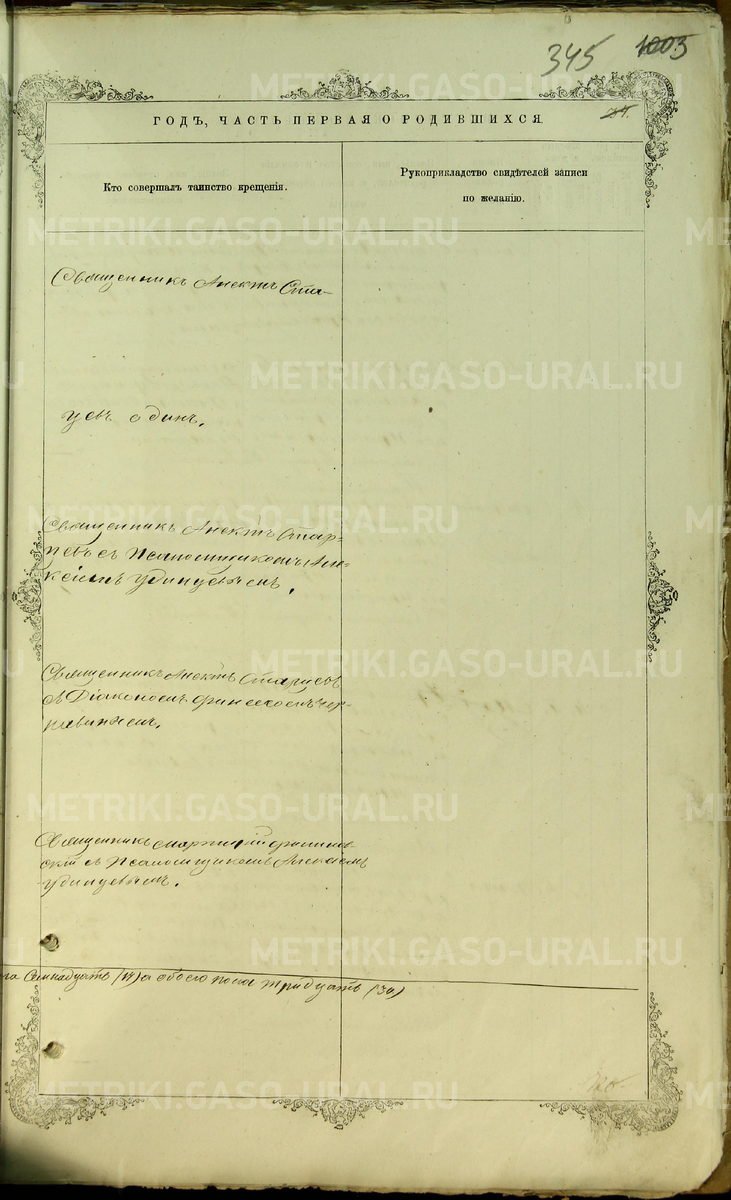 345 1003
ГОДЪ, ЧАСТЬ ПЕРВАЯ О РОДИВШИХСЯ
Кто совершалъ таинство крещенія.
Рукоприкладство свидѣтелей записи
по желанію.
Священникъ Ста-
цевъ одинъ.
Священникъ Стар-
цевъ съ Псаломщикомъ Але-
ксѣемъ Удинцевымъ.
Священникъ Старцевъ
съ Діакономъ
Священникъ
скій съ Псаломщикомъ Алексѣемъ
Удинцевымъ.
Семнадцать (17) а обоего пола тридцать (30)
METRIKI.GASO-URAL.RU